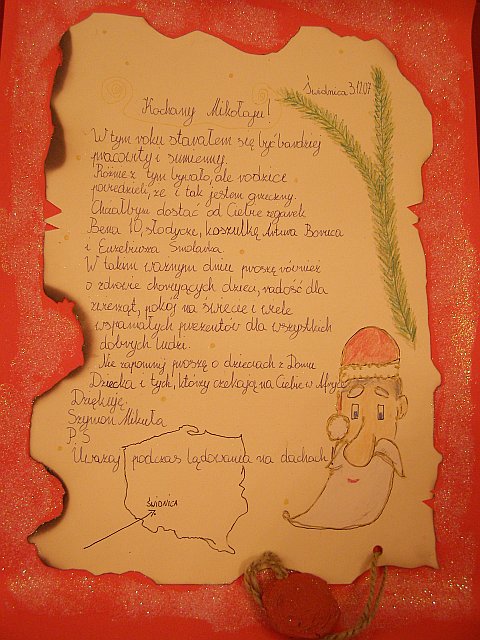 Świdnica 3.12.07
Kochany Mikołaju!
W tym roku starałem się być bardziej
pracowity i sumienny.
Różnie z tym bywało, ale rodzice
powiedzieli, że i tak jestem grzeczny.
Chciałbym dostać od Ciebie zegarek
Bena 10, słodycze, koszulkę Artura Boruca
i Euzebiusza Smolarka.
W takim ważnym dniu proszę również
o zdrowie chorujących dzieci, radość dla
zwierząt, pokój na świecie i wiele
wspaniałych prezentów dla wszystkich
dobrych ludzi.
Nie zapomnij proszę o dzieciach z Domu
Dziecka i tych, którzy czekają na Ciebie w Afryce.
Dziękuję.
Szymon Mikuła
P.S
Uważaj podczas lądowania na dachach!
ŚWIDNICA